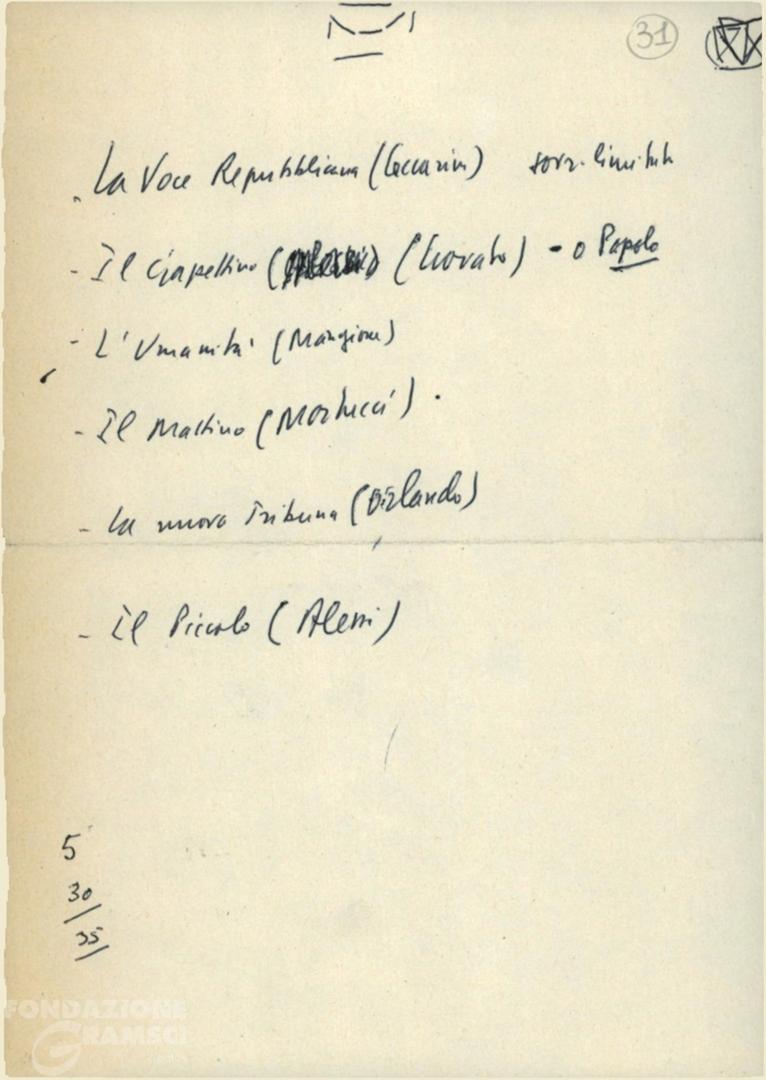 31
- La Voce Repubblicana (Ceccarini)
- Il Ciapettino ( ) (Trovato) - o Popolo
- L'Umanità (Mangione)
- Il Mattino (Martucci) .
- La nuova Tribuna (Orlando)
- Il Piccolo (Alessi)
5
30/
35/
FONDAZIONE
GRAMSCI